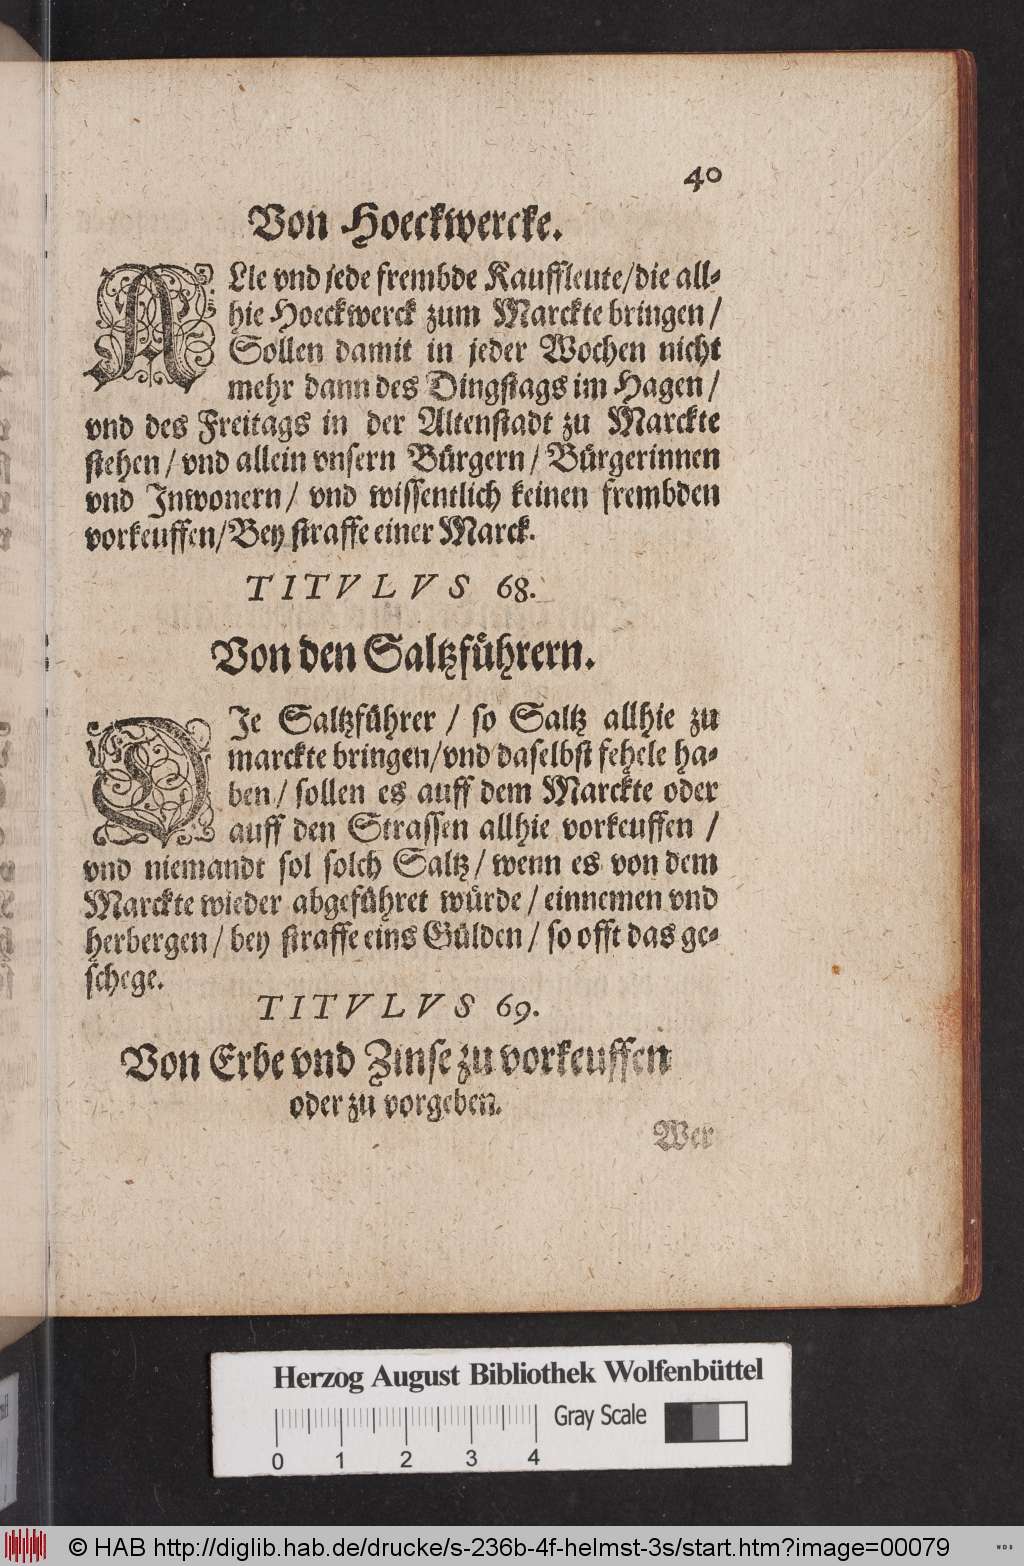 40
Von Hoeckwercke.
ALle vnd jede frembde Kauffleute/die all-
hie Hoeckwerck zum Marckte bringen/
Sollen damit in jeder Wochen nicht
mehr dann des Dingstags im Hagen/
vnd des Freitags in der Altenstadt zu Marckte
stehen/vnd allein vnsern Bürgern/Bürgerinnen
vnd Inwonern/ vnd wissentlich keinen frembden
vorkeuffen/Bey straffe einer Marck.
TITVLVS 68.
Von den Saltzführern.
DIe Saltzführer / so Saltz allhie zu
marckte bringen/vnd daselbst fehele ha-
ben/ sollen es auff dem Marckte oder
auff den Strassen allhie vorkeuffen /
vnd niemandt sol solch Saltz/wenn es von dem
Marckte wieder abgeführet würde/einnemen vnd
herbergen/bey straffe eins Gülden/so offt das ge-
schege.
TITVLVS 69.
Von Erbe vnd Zinse zu vorkeuffen
oder zu vorgeben.
Wer
Herzog August Bibliothek Wolfenbüttel
Gray Scale
0 1 2 3 4
© HAB http://diglib.hab.de/drucke/s-236b-4f-helmst-3s/start.htm?image=00079
WDB